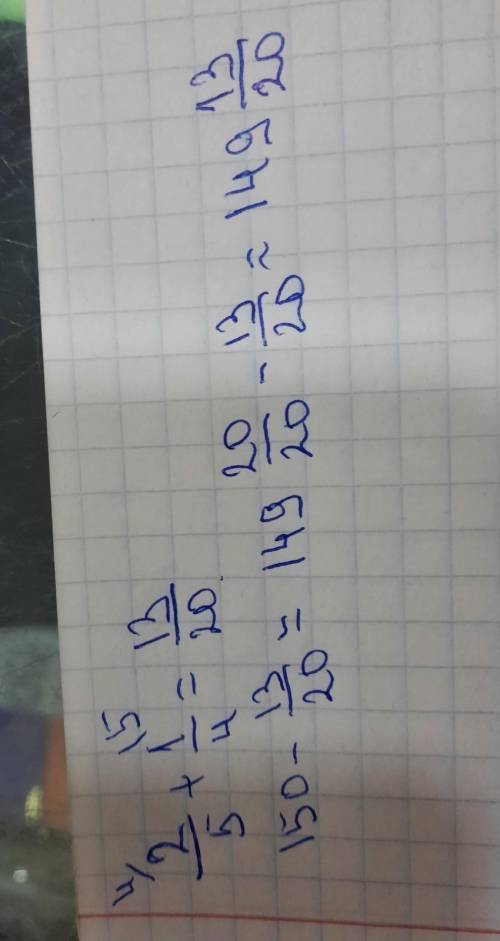 4/ 2/5 + 15/ 1/4 = 13/20
150 - 13/20 = 149 20/20 - 13/20 = 149 13/20